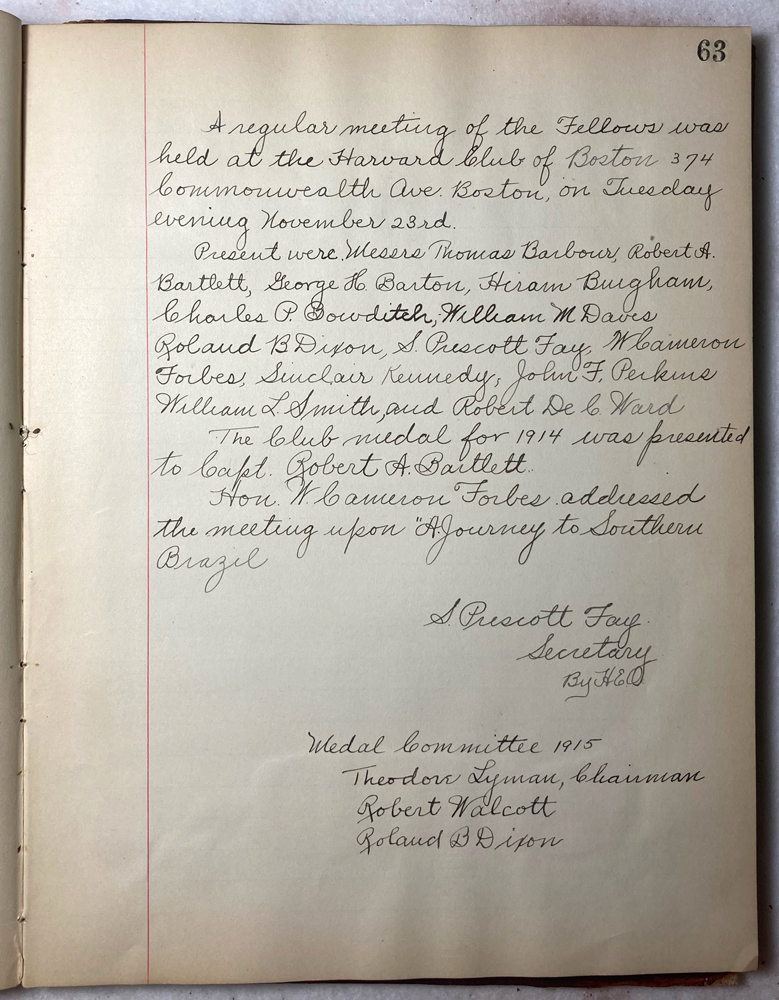 63
A regular meeting of the Fellows was
held at the Harvard Club of Boston 374
Commonwealth Ave. Boston, on Tuesday
evening November 23rd.
Present were. Messrs Thomas Barbour, Robert A.
Bartlett, George H. Barton, Hiram Bingham,
Charles P. Bowditch, William M Davis
Roland B Dixon, S. Prescott Fay, W Cameron
Forbes, Sinclair Kennedy, John F. Perkins
William L. Smith, and Robert De C. Ward
The Club medal for 1914 was presented
to Capt. Robert A. Bartlett.
Hon. W Cameron Forbes addressed
the meeting upon "A Journey to Southern
Brazil
S. Prescott Fay.
Secretary
By HEO
Medal Committee 1915
Theodore Lyman, Chairman
Robert Walcott
Roland B Dixon